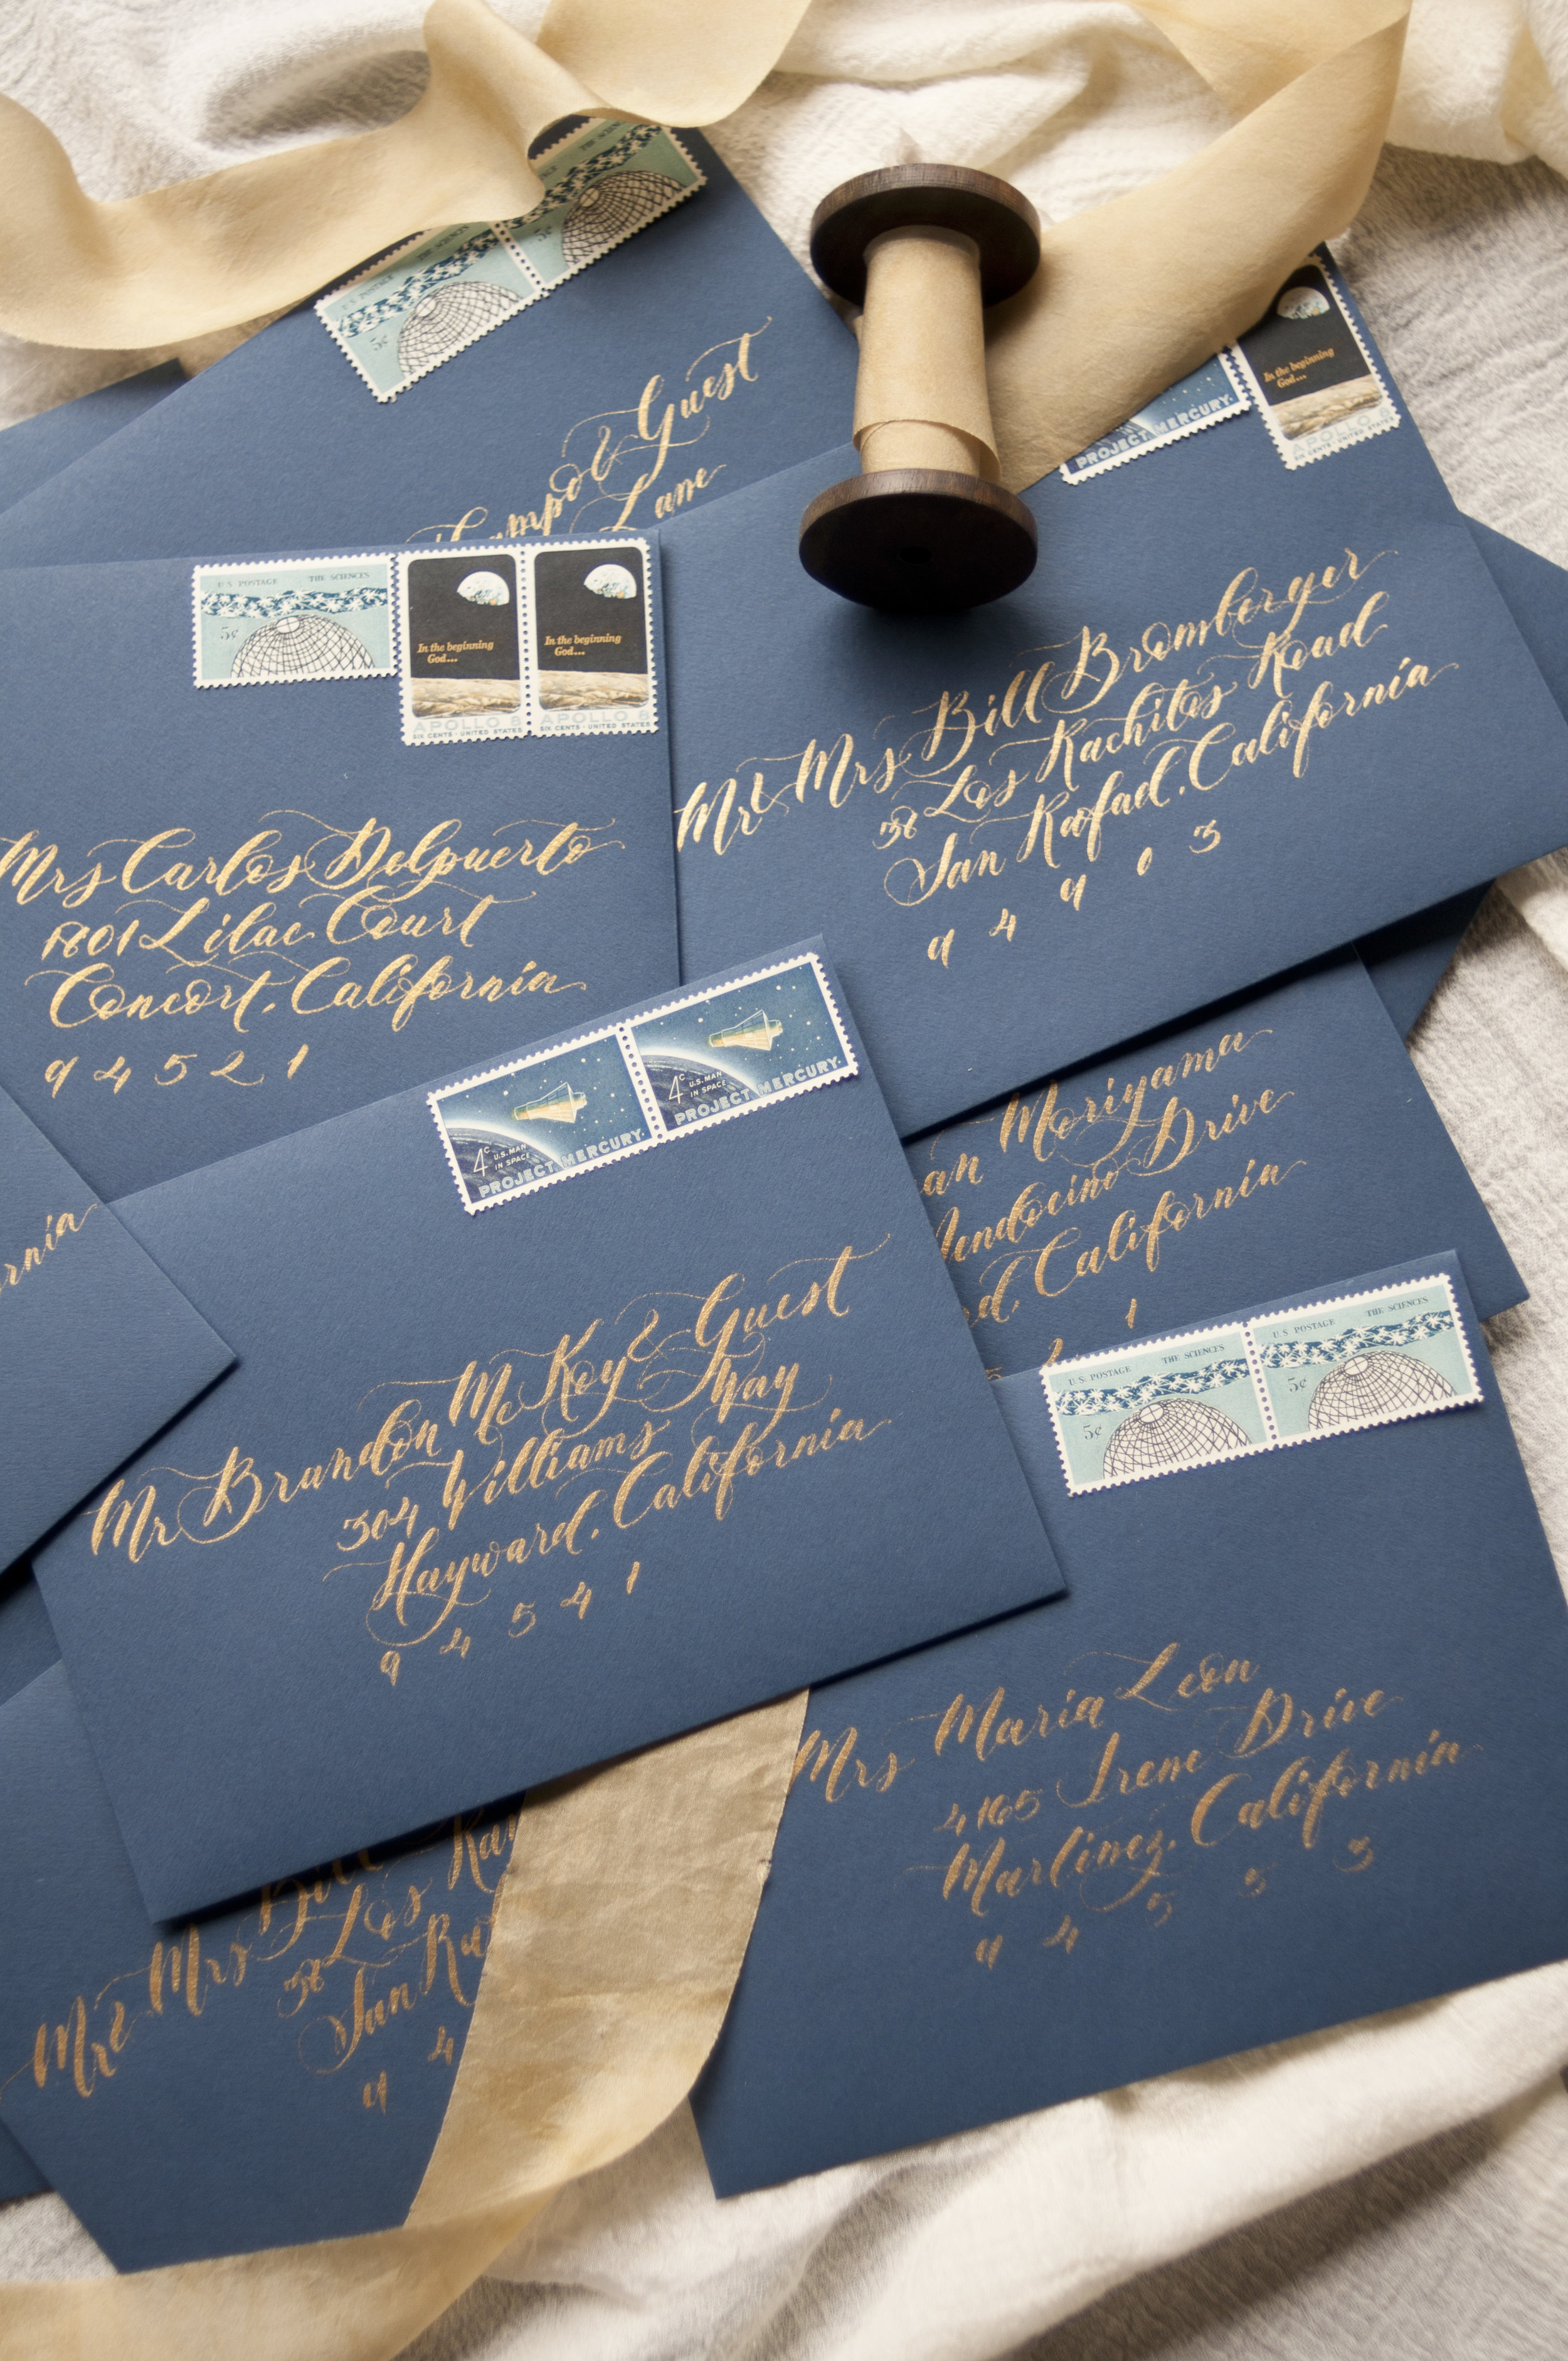 U.S. POSTAGE
5¢
THE SCIENCES
5¢
& Guest
Lane
PROJECT MERCURY
In the beginning
God...
APOLLO 8
SIX CENTS · UNITED STATES
U.S. POSTAGE THE SCIENCES
5¢
In the beginning
God...
APOLLO 8
SIX CENTS · UNITED STATES
In the beginning
God...
APOLLO 8
SIX CENTS · UNITED STATES
Mrs Carlos Delpuerto
1801 Lilac Court
Concort, California
9 4 5 2 1
Mr & Mrs Bill Bromberger
38 Los Kachitos Road
San Rafael, California
9 4 9 0 3
4c U.S. MAN
IN SPACE
PROJECT MERCURY
4c U.S. MAN
IN SPACE
PROJECT MERCURY
Mr Brandon McKoy & Guest
304 Williams Way
Hayward, California
9 4 5 4 1
Moriyama
Drive
California
1
U.S. POSTAGE THE SCIENCES
5¢
U.S. POSTAGE THE SCIENCES
5¢
Mrs Maria Leon
4165 Irene Drive
Martinez, California
9 4 5 5 3
Mr & Mrs Bill
38 Los
San
9 4